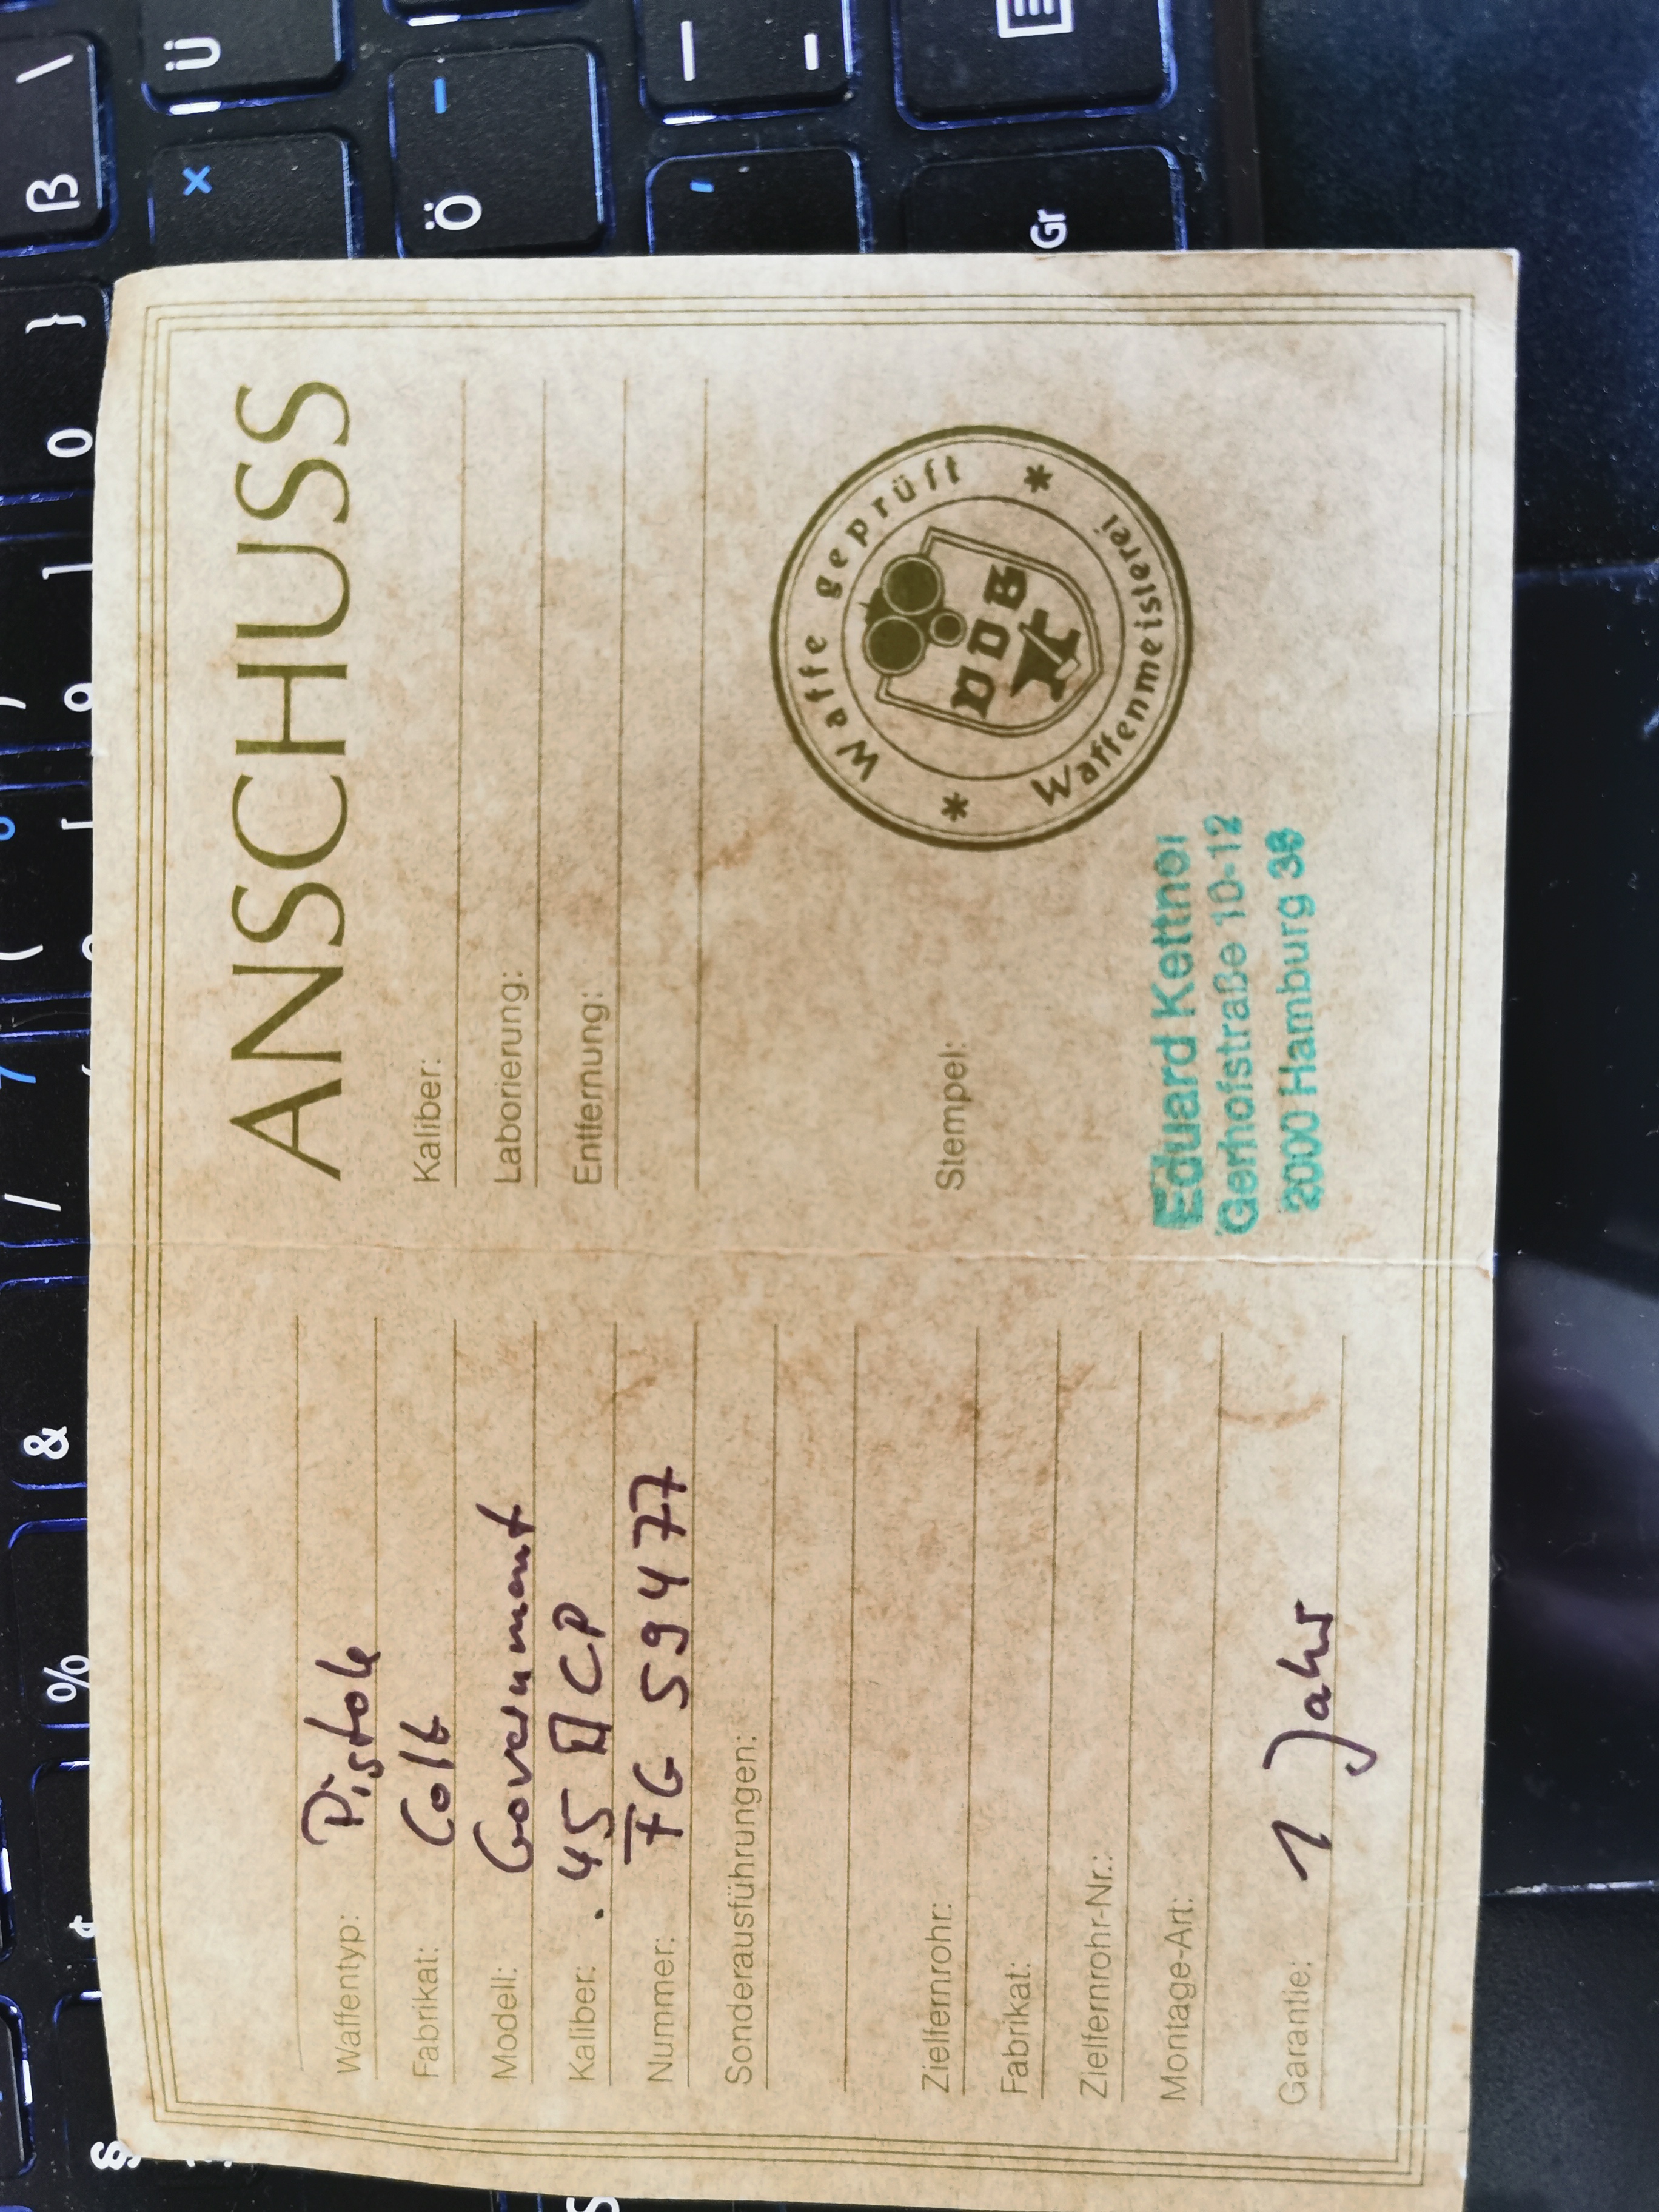 Waffentyp: Pistole
Fabrikat: Colt
Modell: Government
Kaliber: .45 ACP
Nummer: FG 59477
Sonderausführungen:
Zielfernrohr:
Fabrikat:
Zielfernrohr-Nr.:
Montage-Art:
Garantie: 1 Jahr
ANSCHUSS
Kaliber:
Laborierung:
Entfernung:
Stempel:
Waffe geprüft
* *
Waffenmeisterei
Eduard Kettner
Gerhofstraße 10-12
2000 Hamburg 36
ß \
Ü
Ö
Gr
}
0
]
[
(
7
/
&
%
§